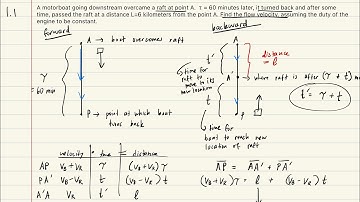 1.1
A motorboat going downstream overcame a raft at point A. τ = 60 minutes later, it turned back and after some
time, passed the raft at a distance L=6 kilometers from the point A. Find the flow velocity, assuming the duty of the
engine to be constant.
forward
A → boat overcomes raft
τ
= 60 min
P → point at which boat
turns back
backward
A
distance
= l
t'
time for
raft to
move to its
new location
A' → where raft is after (τ + t) m
t
P
t' = τ + t
time for
boat to reach new
location of raft
velocity time = distance
AP VB + VR τ (VB + VR) τ
PA' VB - VR t (VB - VR) t
A'A VR t' l
AP = AA' + PA'
(VB + VR) τ = l + (VB - VR) t